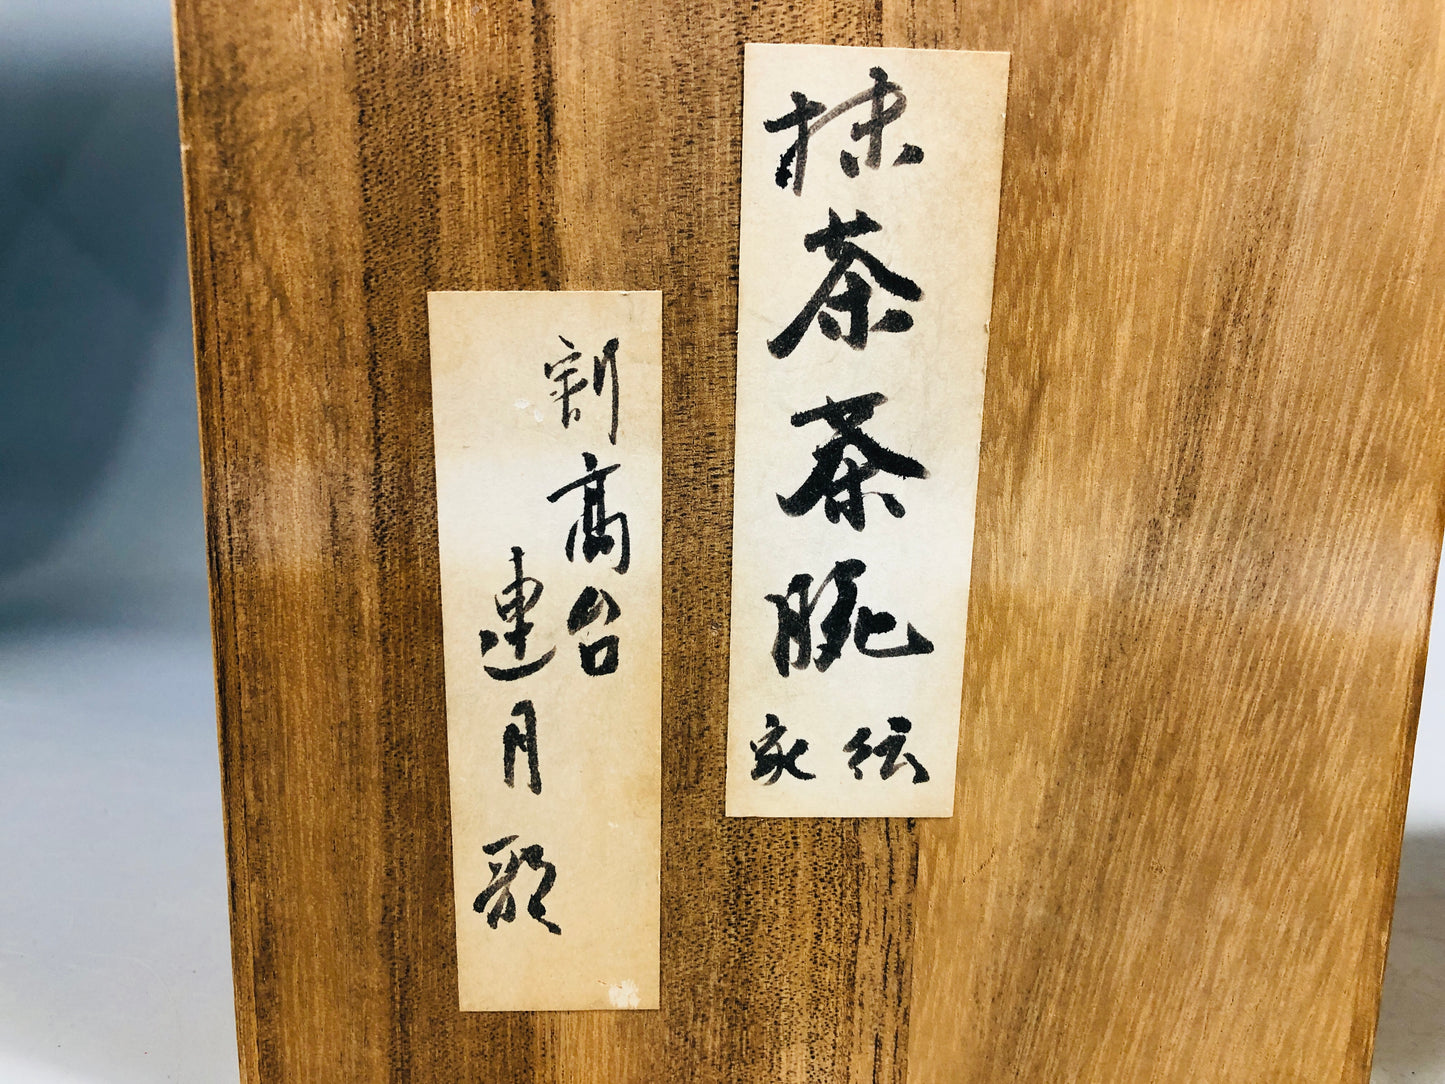 抹茶茶腕
家伝
割高台
連月歌